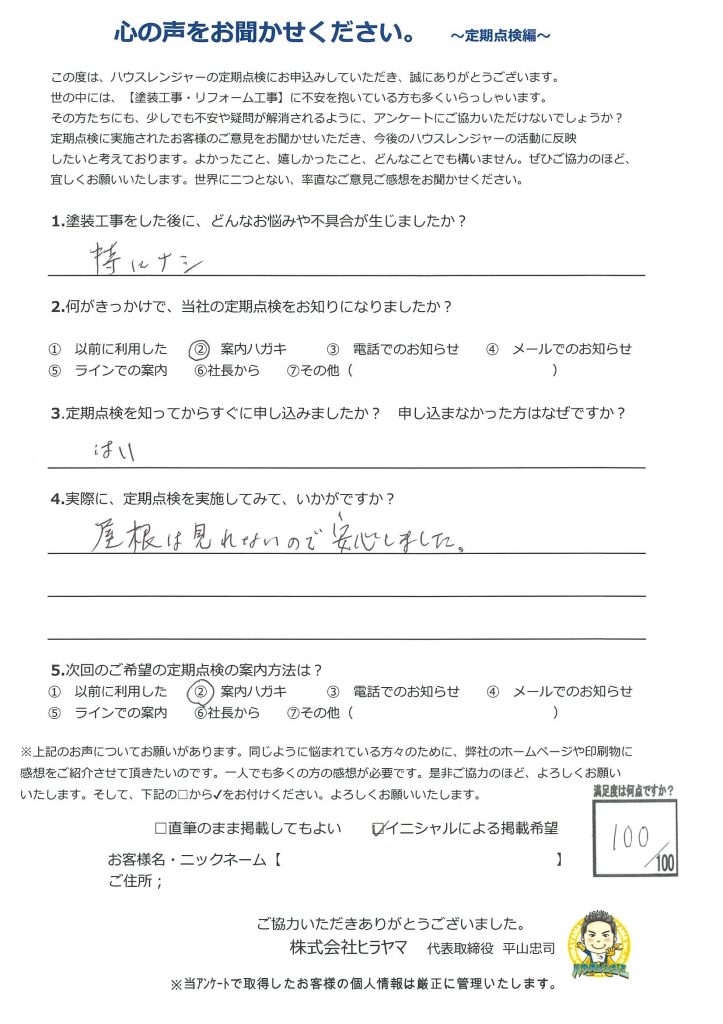 心の声をお聞かせください。　～定期点検編～
この度は、ハウスレンジャーの定期点検にお申込みしていただき、誠にありがとうございます。
世の中には、【塗装工事・リフォーム工事】に不安を抱いている方も多くいらっしゃいます。
その方たちにも、少しでも不安や疑問が解消されるように、アンケートにご協力いただけないでしょうか？
定期点検に実施されたお客様のご意見をお聞かせいただき、今後のハウスレンジャーの活動に反映
したいと考えております。よかったこと、嬉しかったこと、どんなことでも構いません。ぜひご協力のほど、
宜しくお願いいたします。世界に二つとない、率直なご意見ご感想をお聞かせください。
1.塗装工事をした後に、どんなお悩みや不具合が生じましたか？
特にナシ
2.何がきっかけで、当社の定期点検をお知りになりましたか？
①　以前に利用した　②　案内ハガキ　③　電話でのお知らせ　④　メールでのお知らせ
⑤　ラインでの案内　⑥社長から　⑦その他（　　　）
3.定期点検を知ってからすぐに申し込みましたか？　申し込まなかった方はなぜですか？
はい
4.実際に、定期点検を実施してみて、いかがですか？
屋根は見れないので安心しました。
5.次回のご希望の定期点検の案内方法は？
①　以前に利用した　②　案内ハガキ　③　電話でのお知らせ　④　メールでのお知らせ
⑤　ラインでの案内　⑥社長から　⑦その他（　　　）
※上記のお声についてお願いがあります。同じように悩まれている方々のために、弊社のホームページや印刷物に
感想をご紹介させて頂きたいのです。一人でも多くの方の感想が必要です。是非ご協力のほど、よろしくお願い
いたします。そして、下記の□から✓をお付けください。よろしくお願いいたします。
満足度は何点ですか？
100/100
□直筆のまま掲載してもよい　☑イニシャルによる掲載希望
お客様名・ニックネーム【　　　】
ご住所；
ご協力いただきありがとうございました。
株式会社ヒラヤマ　代表取締役　平山忠司
※当アンケートで取得したお客様の個人情報は厳正に管理いたします。